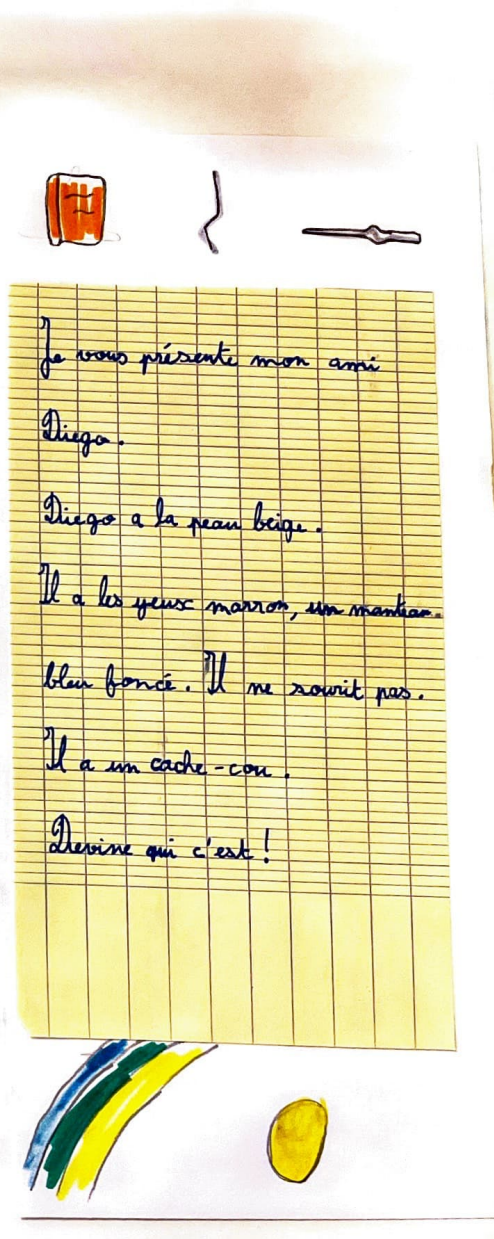 Je vous présente mon ami
Diego.
Diego a la peau beige.
Il a les yeux marron, un manteau
bleu foncé. Il ne sourit pas.
Il a un cache-cou.
Devine qui c'est !